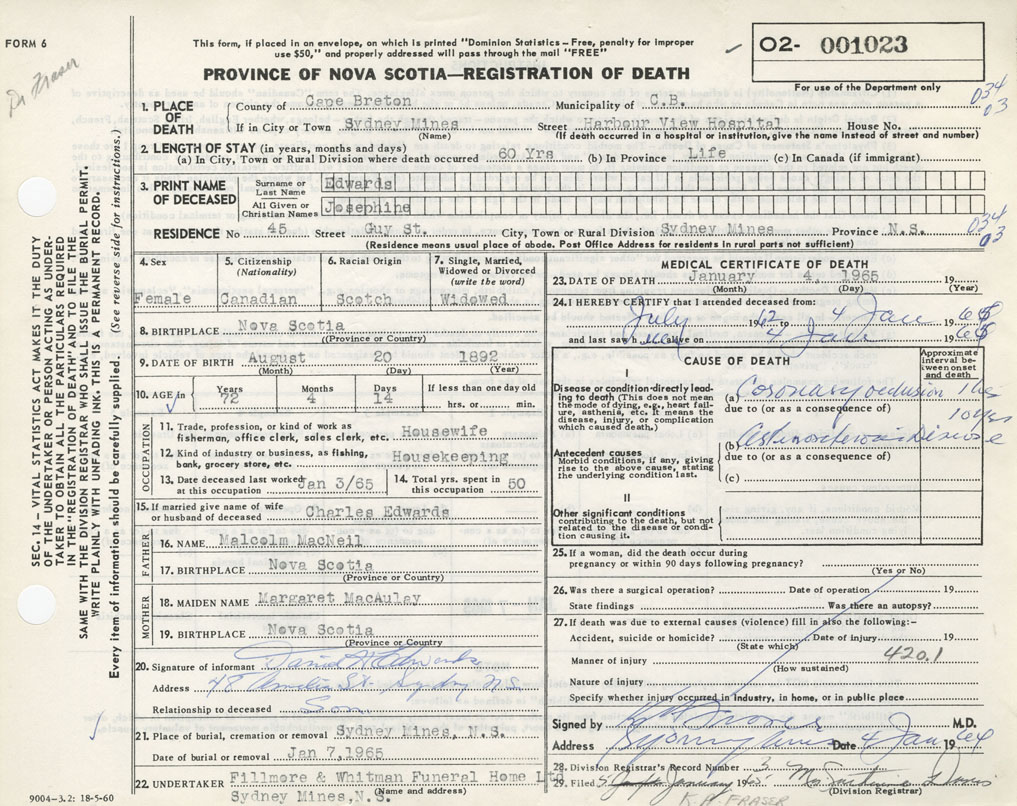 FORM 6
Dr Fraser
This form, if placed in an envelope, on which is printed "Dominion Statistics – Free, penalty for improper
use $50," and properly addressed will pass through the mail "FREE"
O2- 001023
For use of the Department only
PROVINCE OF NOVA SCOTIA—REGISTRATION OF DEATH
034
03
1. PLACE OF DEATH
County of Cape Breton Municipality of C.B.
If in City or Town Sydney Mines Street Harbour View Hospital House No.
(Name) (If death occurred in a hospital or institution, give the name instead of street and number)
2. LENGTH OF STAY (in years, months and days)
(a) In City, Town or Rural Division where death occurred 60 Yrs (b) In Province Life (c) In Canada (if immigrant)
3. PRINT NAME OF DECEASED
Surname or Last Name Edwards
All Given or Christian Names Josephine
RESIDENCE No. 45 Street Guy St. City, Town or Rural Division Sydney Mines Province N.S.
(Residence means usual place of abode. Post Office Address for residents in rural parts not sufficient)
034
03
SEC. 14 – VITAL STATISTICS ACT MAKES IT THE DUTY
OF THE UNDERTAKER OR PERSON ACTING AS UNDER-
TAKER TO OBTAIN ALL THE PARTICULARS REQUIRED
IN THE "REGISTRATION OF DEATH" AND TO FILE THE
SAME WITH THE DIVISION REGISTRAR WHO SHALL ISSUE THE BURIAL PERMIT.
WRITE PLAINLY WITH UNFADING INK. THIS IS A PERMANENT RECORD.
Every item of information should be carefully supplied. (See reverse side for instructions.)
4. Sex Female
5. Citizenship (Nationality) Canadian
6. Racial Origin Scotch
7. Single, Married, Widowed or Divorced (write the word) Widowed
8. BIRTHPLACE Nova Scotia
((Province or Country)
9. DATE OF BIRTH August 20 1892
(Month) (Day) (Year)
10. AGE in Years 72 Months 4 Days 14 If less than one day old hrs. or min.
OCCUPATION
11. Trade, profession, or kind of work as
fisherman, office clerk, sales clerk, etc. Housewife
12. Kind of industry or business, as fishing,
bank, grocery store, etc. Housekeeping
13. Date deceased last worked
at this occupation Jan 3/65
14. Total yrs. spent in
this occupation 50
15. If married give name of wife
or husband of deceased Charles Edwards
FATHER
16. NAME Malcolm MacNeil
17. BIRTHPLACE Nova Scotia
(Province or Country)
MOTHER
18. MAIDEN NAME Margaret MacAulay
19. BIRTHPLACE Nova Scotia
(Province or Country
20. Signature of informant David Edwards
Address 48 St. Sydney N.S.
Relationship to deceased Son
21. Place of burial, cremation or removal Sydney Mines, N.S.
Date of burial or removal Jan 7,1965
22. UNDERTAKER Fillmore & Whitman Funeral Home Ltd
(Name and address)
Sydney Mines,N.S.
9004-3.2: 18-5-60
MEDICAL CERTIFICATE OF DEATH
23. DATE OF DEATH January 4, 1965 19
(Month) (Day) (Year)
24. I HEREBY CERTIFY that I attended deceased from:
July 1962 to 4 Jan 1965
and last saw h alive on 4 Jan 1965
CAUSE OF DEATH
Approximate interval between onset and death
I
Disease or condition directly lead-
ing to death (This does not mean
the mode of dying, e.g., heart fail-
ure, asthenia, etc. It means the
disease, injury, or complication
which caused death.)
(a) Coronary occlusion
due to (or as a consequence of)
10 yrs
(b) Disease
due to (or as a consequence of)
(c)
Antecedent causes
Morbid conditions, if any, giving
rise to the above cause, stating
the underlying condition last.
II
Other significant conditions
contributing to the death, but not
related to the disease or condi-
tion causing it.
25. If a woman, did the death occur during
pregnancy or within 90 days following pregnancy?
(Yes or No)
26. Was there a surgical operation? Date of operation 19
State findings Was there an autopsy?
27. If death was due to external causes (violence) fill in also the following:–
Accident, suicide or homicide? Date of injury 19
(State which)
420.1
Manner of injury
(How sustained)
Nature of injury
Specify whether injury occurred in industry, in home, or in public place
Signed by M.D.
Address Sydney Mines Date 4 Jan 1964
28. Division Registrar's Record Number 3
29. Filed January 1965
(Division Registrar)
K.H. FRASER